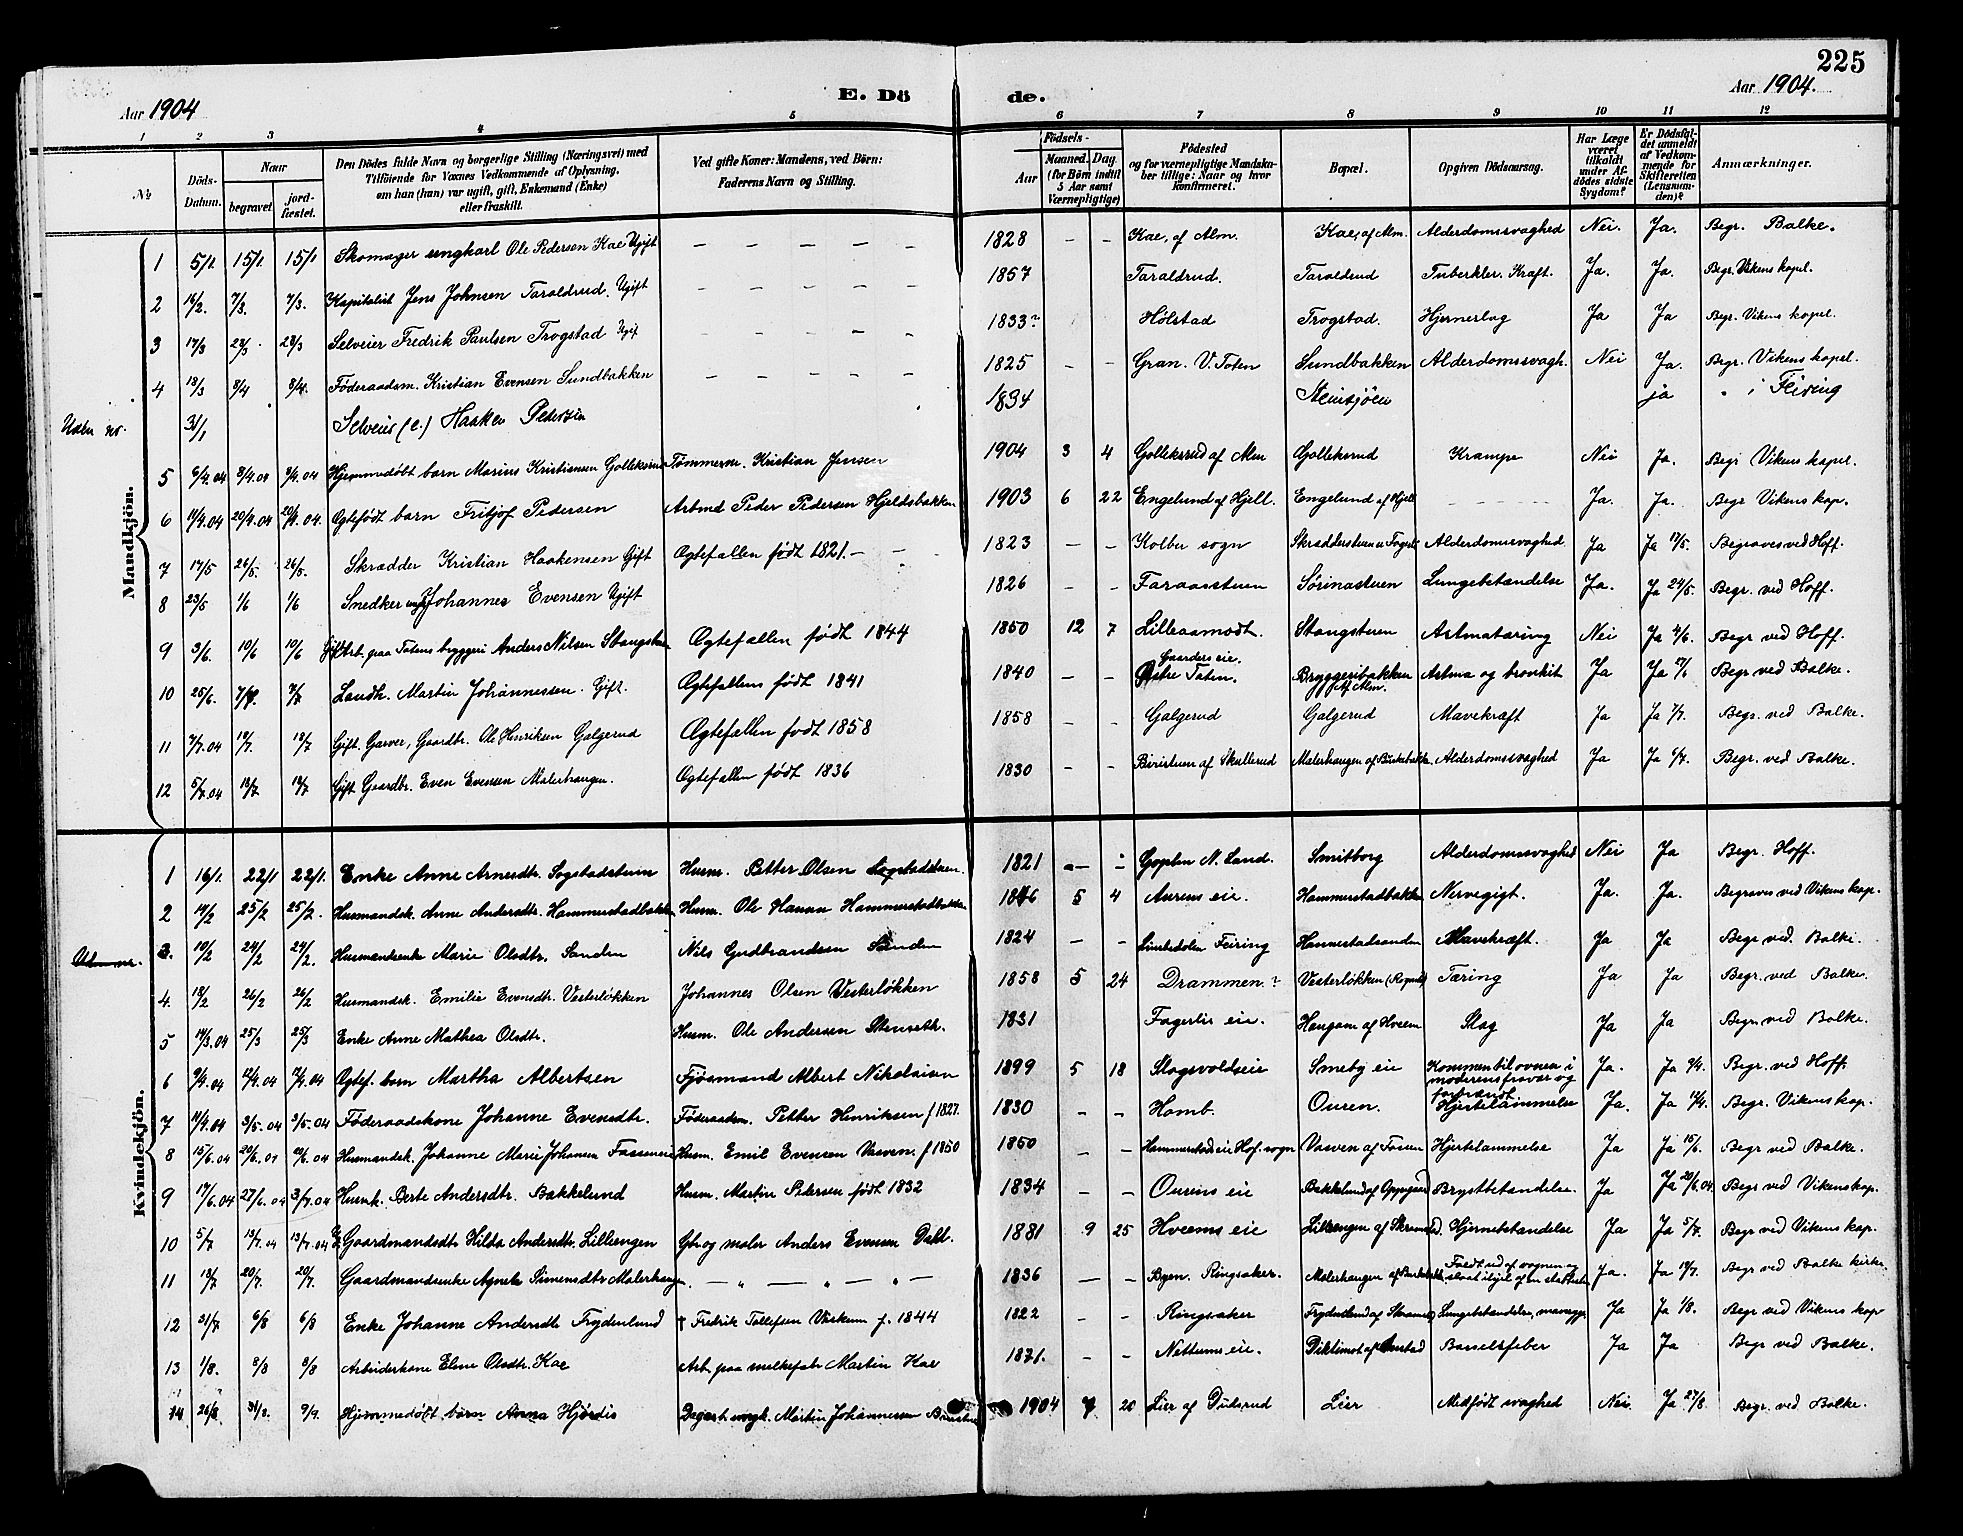 225
Aar 1904
E. Dö
de.
Aar 1904.
1 2 3 4 5 6 7 8 9 10 11 12
№
Döds-Datum.
Naar
begravet
jord-fæstet.
Den Dödes fulde Navn og borgerlige Stilling (Næringsvei) med
Tilföiende for Voxnes Vedkommende af Oplysning,
om han (hun) var ugift, gift, Enkemand (Enke)
eller fraskilt.
Ved gifte Koner: Mandens, ved Börn:
Faderens Navn og Stilling.
Födsels-
Aar
Maaned. Dag.
(for Börn indtil
5 Aar samt
Værnepligtige)
Födested
og for værnepligtige Mandska-
ber tillige: Naar og hvor
konfirmeret.
Bopæl.
Opgiven Dödsaarsag.
Har Læge
været
tilkaldt
under Af-
dödes sidste
Sygdom?
Er Dödsfal-
det anmeldt
af Vedkom-
mende for
Skifteretten
(Lensman-
den)?
Anmærkninger.
Mandkjön.
1 5/1. 15/1. 15/1 Skomager ungkarl Ole Pedersen Kae Ugift — — — — — 1828 — — Kae, af Alm. Kae, af Alm. Alderdomssvaghed Nei. Ja. Begr. Balke.
2 16/2. 7/3. 7/3. Kapitalist Jens Johnsen Taraldrud. Ugift — — — — — 1857 Taraldrud. Taraldrud Tuberkler. Kraft. Ja. Ja. Begr. Vikens kapel.
3 17/3 28/3. 28/3 Selveier Fredrik Paulsen Trogstad Ugift — — — — — 1833? Hölstad Trogstad. Hjerneslag Ja Ja Begr. Vikens kapel.
4 18/3 8/4 8/4. Föderaadsm. Kristian Evensen Sundbakken — — — — — 1825 — — Gran. V. Toten Sundbakken Alderdomssvagh. Nei Ja. Begr. Vikens kapel.
Uden nr. 31/1 Selveier (e.) Haaken Pedersen 1834 Steinsjöen ja " i Feiring
5 6/4.04 8/4.04 8/4.04 Hjemmedöbt barn Marius Kristiansen Golleksrud Tömmerm. Kristian Jensen 1904 3 4 Golleksrud af Alm Golleksrud Krampe Nei Ja. Begr Vikens kapel.
6 11/4.04 20/4.04 20/4.04. Ægtefödt barn Fritjof Pedersen Arbmd Peder Pedersen Hjeldsbakken 1903 6 22 Engelund af Hjell. Engelund af Hjell Ja. Ja. Begr Vikens kap.
7 17/5 26/5. 26/5. Skrædder Kristian Haakensen Gift Ægtefællen födt 1821. — — 1823 — — Kolbu sogn Alderdomssvaghed Ja Ja 17/5. Begraves ved Hoff.
8 23/5 1/6 1/6 Snedker Johannes Evensen Ugift 1826 — — Faraasstuen Sörinastuen Lungebetændelse Ja. Ja 24/5. Begr. ved Hoff.
9 3/6. 10/6 10/6 Gift Arb. paa Totens bryggeri Anders Nilsen Stangstuen Ægtefællen födt 1844 1850 12 7 Lilleaamodt. Stangstuen Astmatæring Nei Ja 4/6. Begr ved Hoff.
10 25/6. 7/7. 7/7 Landh. Martin Johannessen. Gift. Ægtefællens födt 1841 1840 — — Gaarders eie. Östre Toten. Bryggeribakken af Alm. Astma og bronkit Ja Ja Begr ved Balke.
11 7/7.04 18/7. 18/7 Gift. Garver, Gaardbr. Ole Henriksen Galgerud Ægtefællen födt 1858 1858 — — Galgerud Galgerud Mavekræft Ja Ja 7/7. Begr. ved Balke.
12 5/7.04 13/7 13/7 Gift Gaardbr. Even Evensen Malerhaugen. Ægtefællen födt 1836 1830 — — Biristuen af Skullerud Alderdomssvaghed Ja Ja 6/7. Begr. ved Balke.
Kvindekjön.
1 16/1. 22/1 22/1. Enke Anne Arnesdtr. Sogstadstuen Husm. Petter Olsen Sogstadstuen. 1821 — — N. Land. Smitborg Alderdomssvaghed Nei Ja Begr. Hoff.
2 14/2 25/2 25/2. Husmandsk. Anne Andersdtr. Hammerstadbakken Husm. Ole Hansen Hammerstadbakken 1846 5 4 Aurens eie. Hammerstadbakken Nervegigt. Ja. Ja. Begraves ved Vikens kap.
3. 10/2 24/2 24/2. Husmandsenke Marie Olsdtr. Sanden Nils Gudbrandsen Sanden 1824 — — Feiring Hammerstadsanden Mavekræft. Ja Ja Begr ved. Balke.
4. 18/2 26/2 26/2 Husmandsk. Emilie Evensdtr. Vesterlökken Johannes Olsen Vesterlökken 1858 5 24 Drammen? Vesterlökken Tæring Ja Ja Begr. ved Balke.
5 14/3.04 25/3 25/3 Enke Anne Mathea Olsdtr. Husm. Ole Andersen Stenseth. 1831 Fagerlis eie. Haugom af Hveem Slag Ja Ja Begr. ved Balke.
6 9/4.04 12/4.04 12/4.04 Ægtef. barn Martha Albertsen Fjösmand Albert Nikolaisen 1899 5 18 Slagsvoldseie Smeby eie Kommen til ovnen i moderens fravær og forbrændt Ja. Ja 9/4. Begr. ved Hoff.
7 11/4.04 3/5.04 3/5.04 Föderaadskone Johanne Evensdtr. Föderaadsm. Petter Henriksen f 1827. 1830 — — Homb. Ouren. Hjertelammelse Ja. Ja 12/4. Begr. Vikens kap.
8 15/6.04 20/6.04 20/6.04 Husmandsk. Johanne Marie Johansen Husm. Emil Evensen Vasven. f 1850 1850 — — Hammerstad eie Hof. sogn Vasven Hjertelammelse Ja Ja 15/6. Begr ved Balke.
9 17/6.04 27/6.04 3/7.04 Husmk. Berte Andersdtr. Bakkelund Husm. Martin Pedersen födt 1832 1834 — — Ourens eie Bakkelund Brystbetændelse. Ja Ja 20/6.04. Begr ved Vikens kap.
10 5/7 13/7.04 13/7.04 Gaardmandsdtr Hilda Andersdtr. Lillsengen Gbr og maler Anders Evensen Dahl. 1881 9 25 Hveems eie Hjernebetændelse Ja Ja 5/7. Begr ved Vikens kap.
11 13/7 20/7. 20/7. Gaardmandsenke Agnete Simensdtr Malerhaugen. — " — " — " — 1836 — — Byen. Ringsaker. Faldt ud af vognen og Ja. Ja 14/7. Begr ved Balke kirke
12 31/7 6/8 6/8 Enke Johanne Andersdtr Frydenlund † Fredrik Tollefsen f. 1844 1822 — — Ringsaker Lungebetændelse, Ja Ja 1/8. Begr ved Vikens kap
13 1/8. 8/8 8/8 Arbeiderkone Eline Olsdtr. Kae Arb. paa melkefab. Martin Kae 1871. — — Nettums eie. Barselsfeber Ja Ja Begr ved Balke.
14 26/8 31/8. 9/9. Hjemmedöbt barn Anna Hjördis Martin Johannessen 1904 7 20 Lier af Dulsrud Lier Medfödt svaghed Nei. Ja 27/8. Begr. ved Balke.